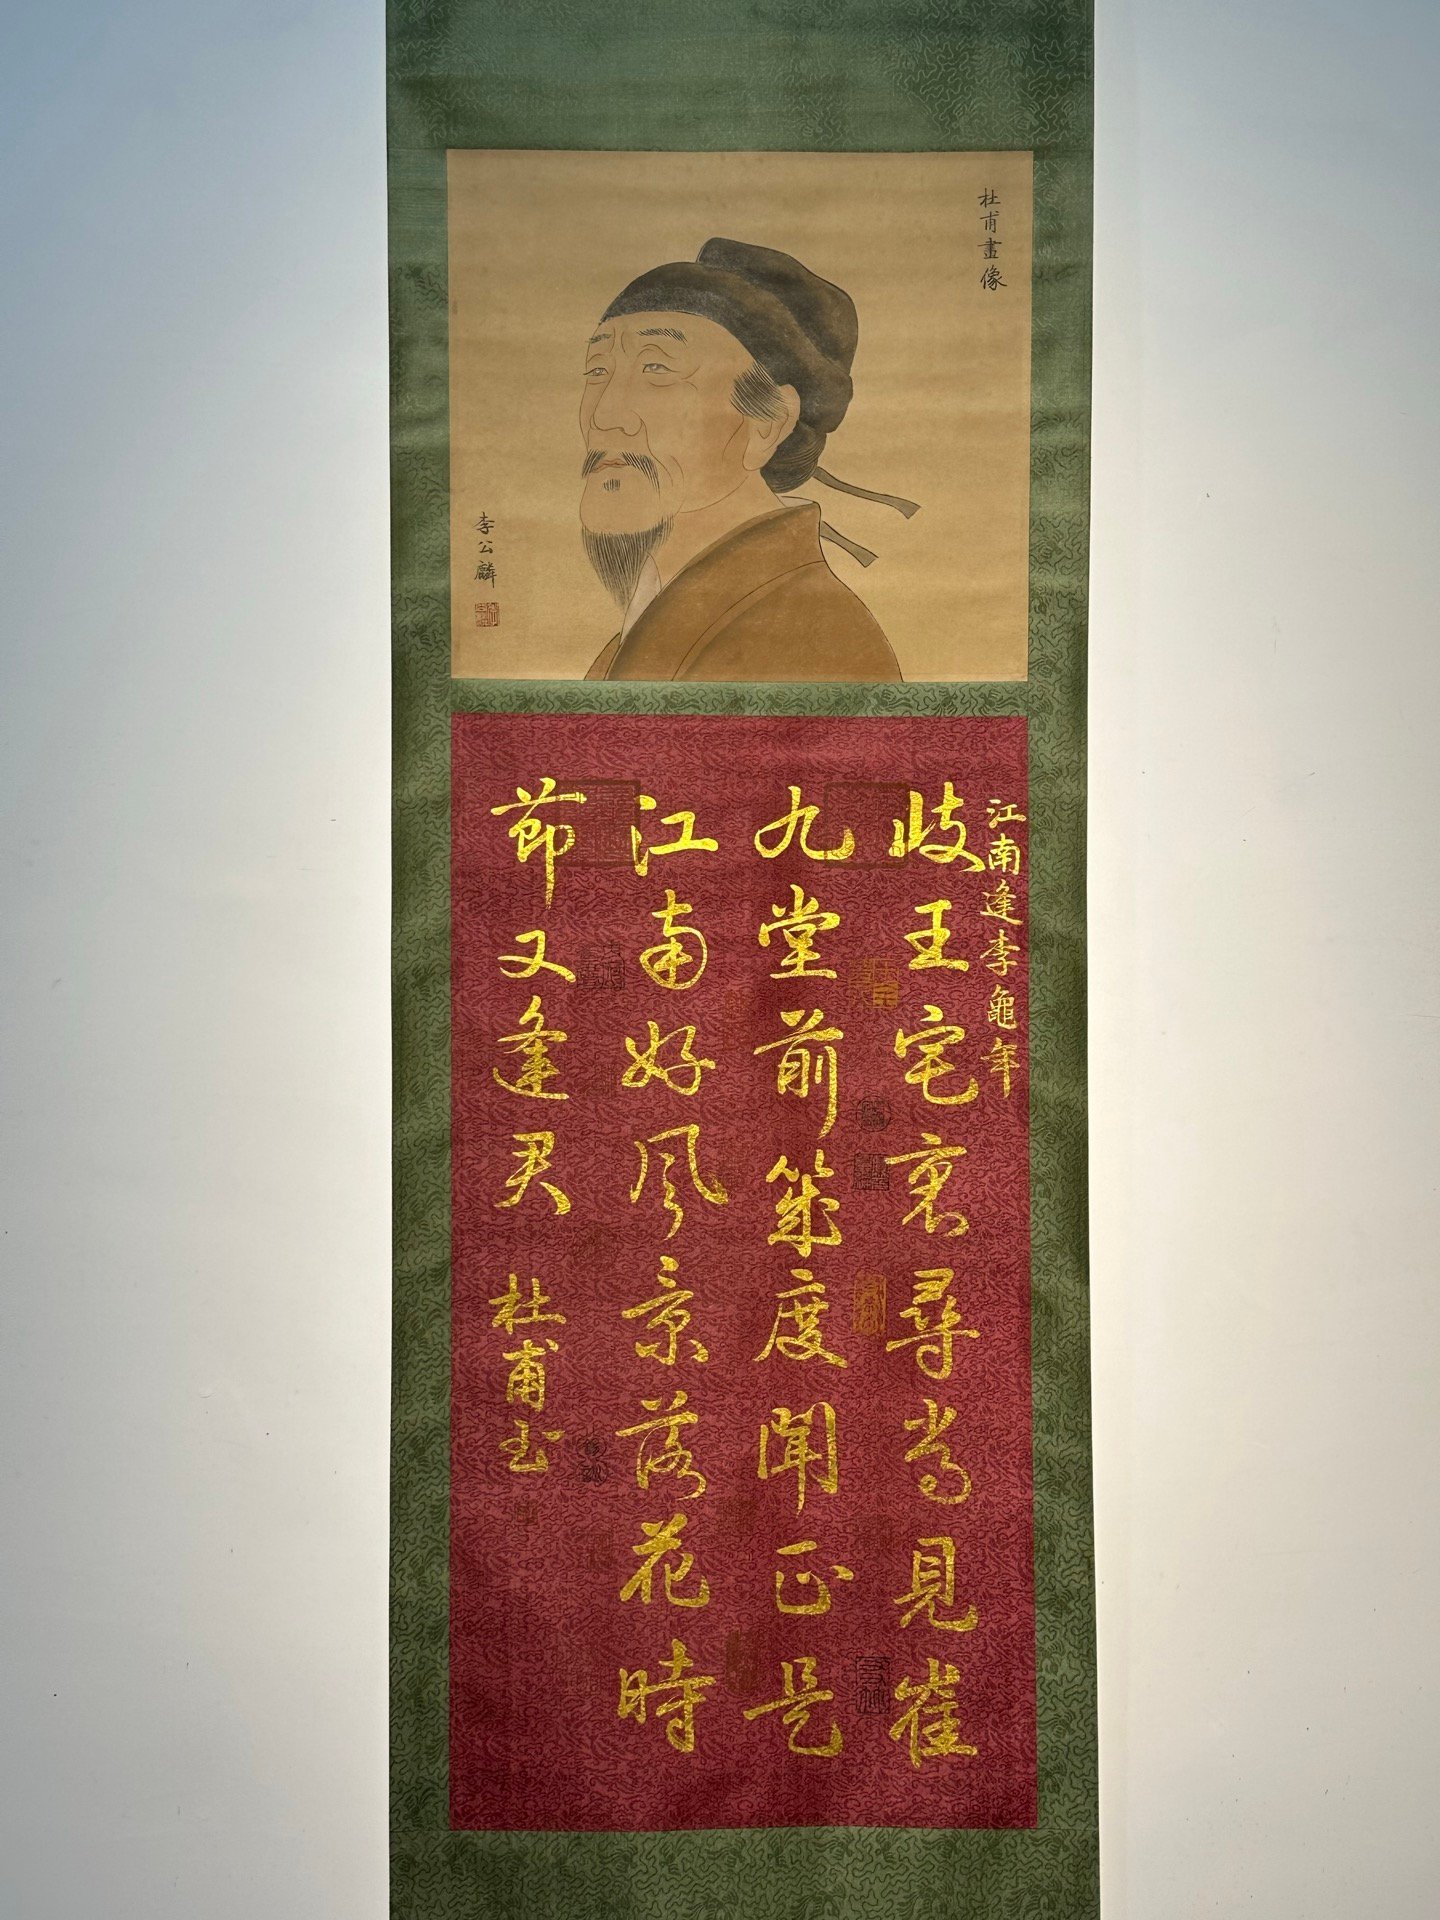 杜甫畫像
李公麟
江南逢李龜年
岐王宅裏尋常見崔
九堂前幾度聞正是
江南好風景落花時
節又逢君
杜甫